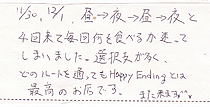 11/30, 12/1, 昼→夜→昼→夜と
4回来て毎回何を食べるか迷って
しまいました。選択肢が多く、
どのルートを通ってもHappy Endingとは
最高のお店です。また来ます